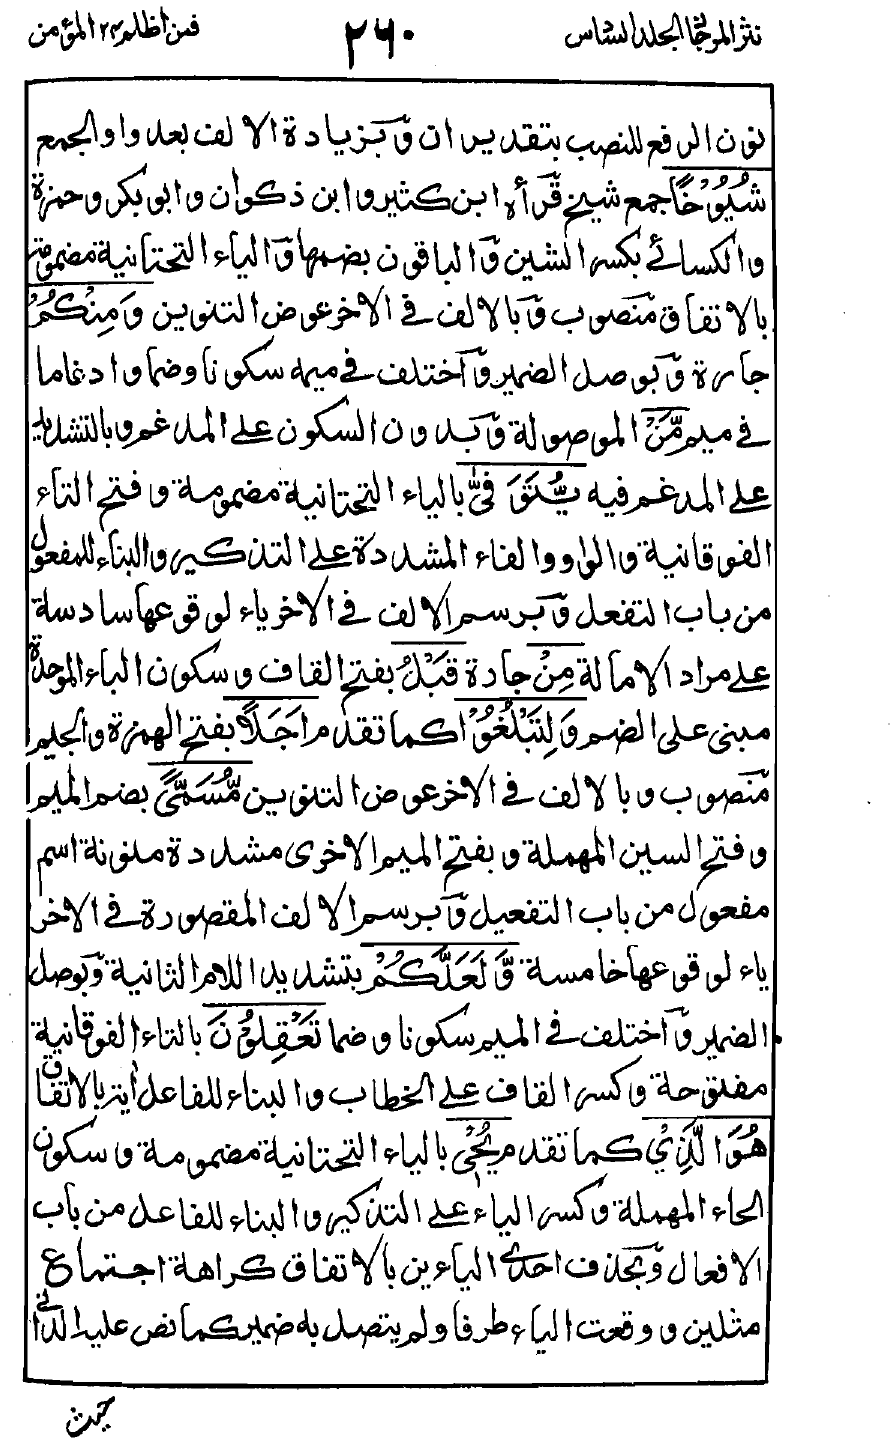 نثر المرجان المجلد السادس ٢٦٠ فمن اظلم ٢٤ المؤمن
نون الرفع للنصب بتقدير ان وَبزيادة الالف بعد واو الجمع
شُيُوْخًا جمع شيخ قَرأه ابن كثير وابن ذكوان وابو بكر وحمزة
والكسائي بكسر الشين وَالباقون بضمها وَالياء التحتانية مضمومة
بالاتفاق منصوب وَبالالف في الاخر عوض التنوين وَمِنْكُمْ
جارة وَبوصل الضمير وَاختلف في ميمه سكونا وضما وادغاما
في ميم مَّنْ الموصولة وَبدون السكون على المدغم وبالتشديد
على المدغم فيه يُّتَوَفّٰى بالياء التحتانية مضمومة وفتح التاء
الفوقانية والواو والفاء المشددة على التذكير والبناء للمفعول
من باب التفعل وَبرسم الالف في الاخر ياء لوقوعها سادسة
على مراد الامالة مِنْ جارة قَبْلُ بفتح القاف وسكون الباء الموحدة
مبنى على الضم وَلِتَبْلُغُوْا كما تقدم اَجَلًا بفتح الهمزة والجيم
منصوب وبالالف في الاخر عوض التنوين مُّسَمًّى بضم الميم
وفتح السين المهملة وبفتح الميم الاخرى مشددة منونة اسم
مفعول من باب التفعيل وَبرسم الالف المقصورة في الاخر
ياء لوقوعها خامسة وَّلَعَلَّكُمْ بتشديد اللام الثانية وَبوصل
الضمير وَاختلف في الميم سكونا وضما تَعْقِلُوْنَ بالتاء الفوقانية
مفتوحة وكسر القاف على الخطاب والبناء للفاعل اية بالاتفاق
هُوَ الَّذِيْ كما تقدم يُحْيٖ بالياء التحتانية مضمومة وسكون
الحاء المهملة وكسر الياء على التذكير والبناء للفاعل من باب
الافعال وَبحذف احدى الياءين بالاتفاق كراهة اجتماع
مثلين ووقعت الياء طرفا ولم يتصل به ضمير كما نص عليه الداني
حيث